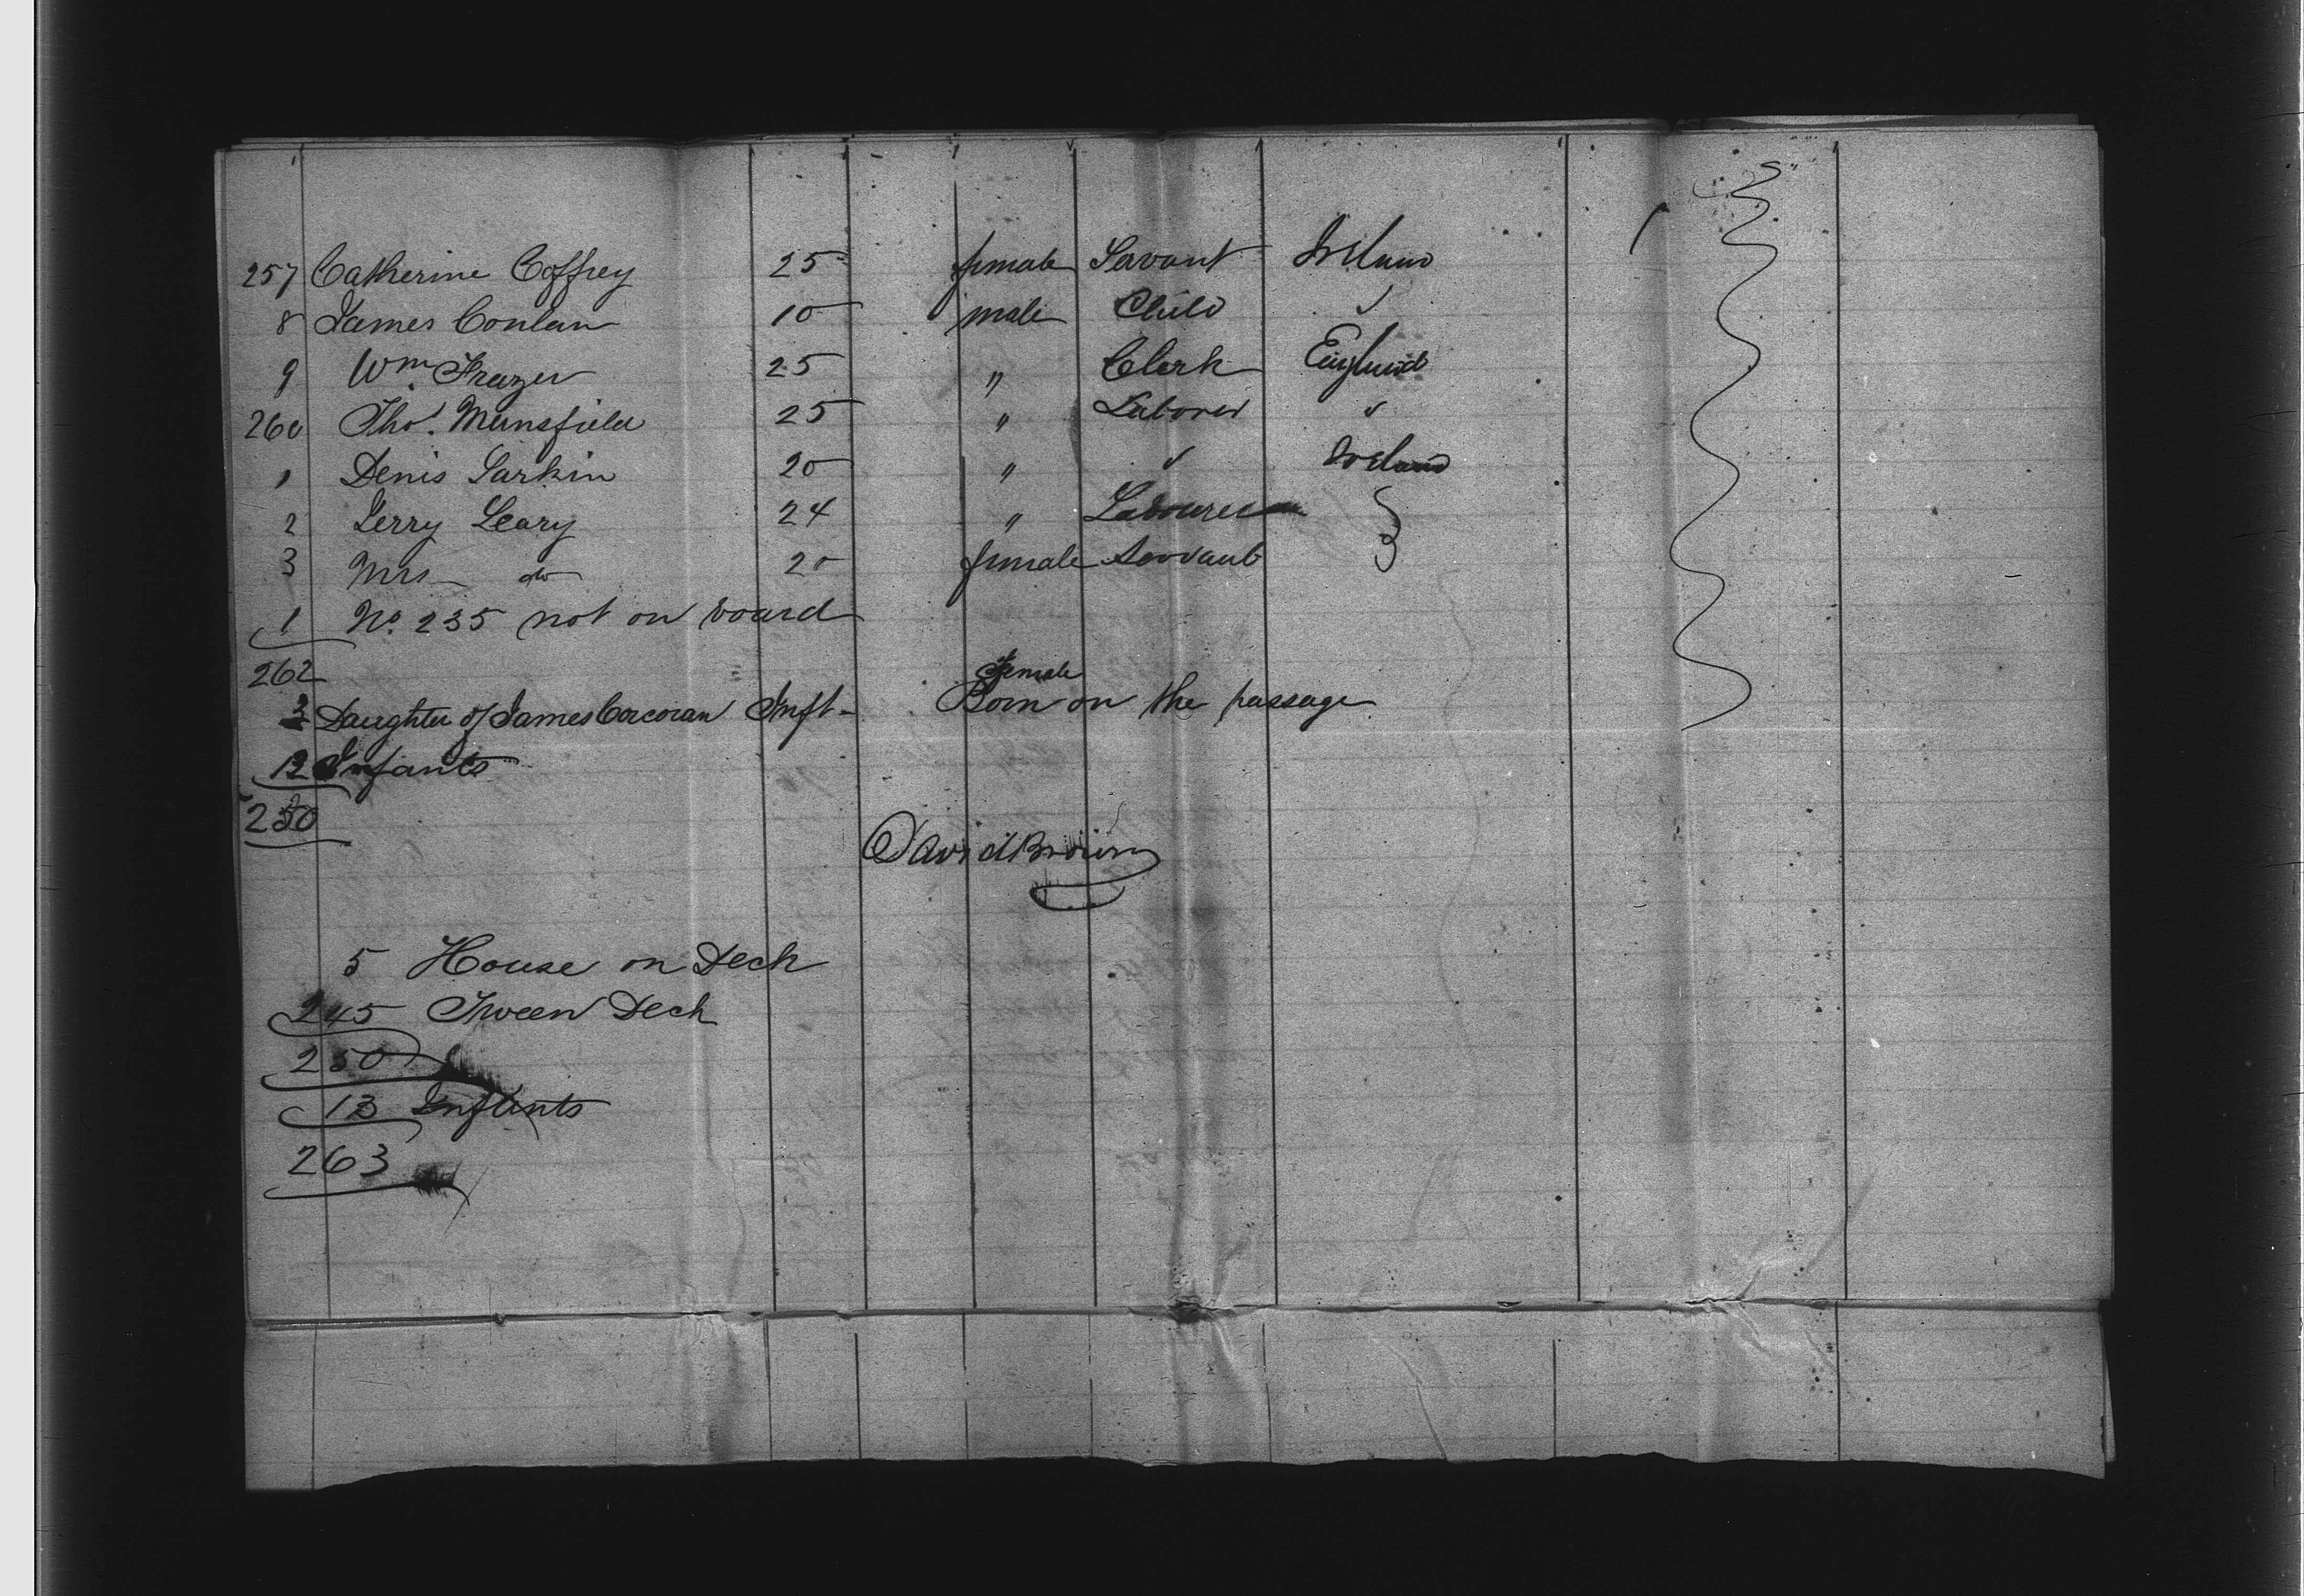 257 Catherine Coffrey 25 female Servant Ireland
8 James Conlan 10 male Child "
9 Wm Frazer 25 " Clerk England
260 Thos. Mansfield 25 " Laborer "
1 Denis Larkin 20 " " Ireland
2 Jerry Leary 24 " Labourer
3 Mrs do 20 female Servant
1 No. 235 not on board
262
female
3 Daughter of James Corcoran Inft- Born on the passage
12 Infants
250
David Brown
5 House on Deck
245 Tween Deck
250
13 Infants
263